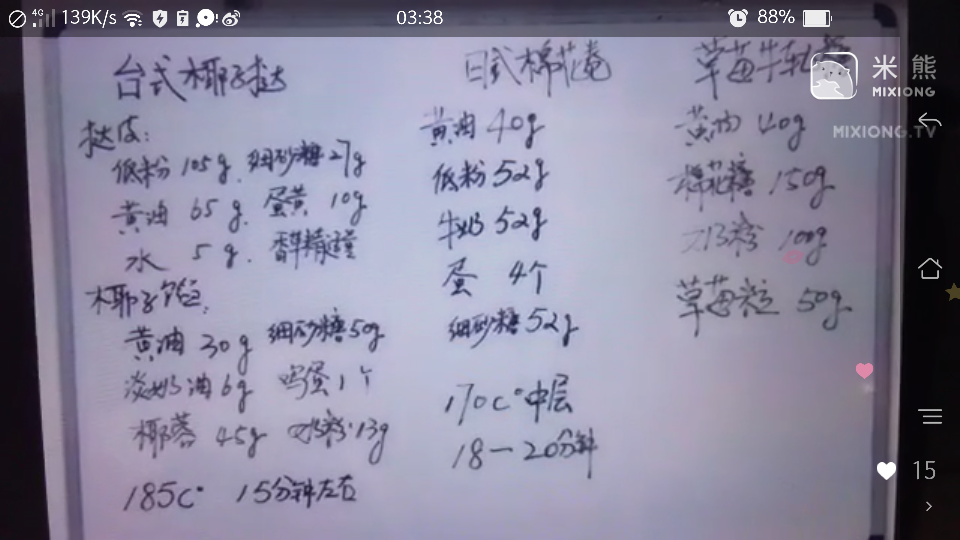 4G 139K/s 03:38 88%
米熊
MIXIONG
MIXIONG.TV
台式椰子挞
挞皮:
低粉 105g. 细砂糖 27g
黄油 65g. 蛋黄 10g
水 5g. 香草精适量
椰子馅:
黄油 30g 细砂糖 50g
淡奶油 6g 鸡蛋 1个
椰蓉 45g 奶粉 13g
185C° 15分钟左右
日式棉花
黄油 40g
低粉 52g
牛奶 52g
蛋 4个
细砂糖 52g
170C° 中层
18-20分钟
草莓牛轧
黄油 40g
棉花糖 150g
奶粉 100g
草莓粒 50g
15